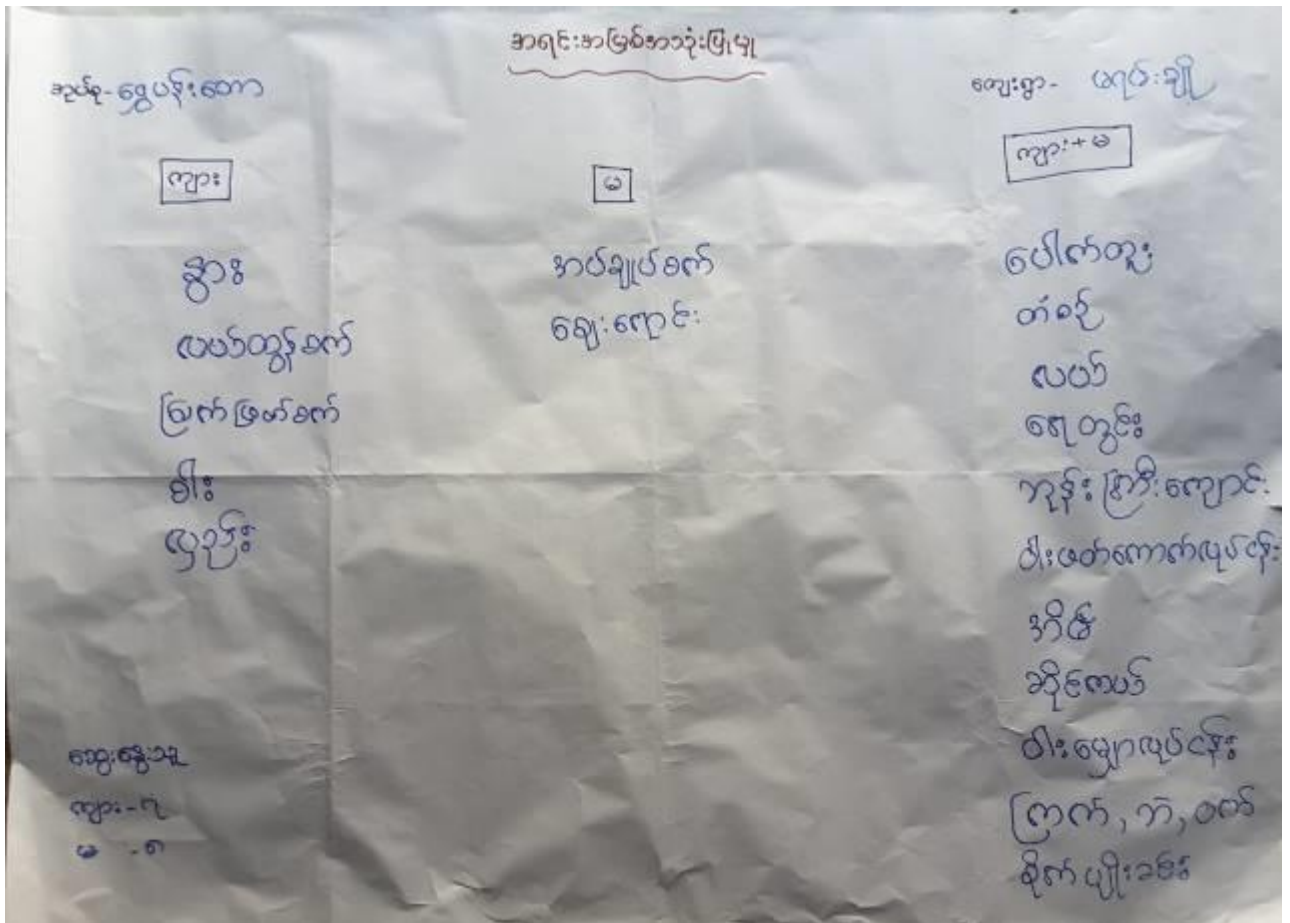 အရင်းအမြစ်အသုံးပြုမှု
အုပ်စု - ရွှေပန်းတော
ကျေးရွာ - မရမ်းချို
ကျား
နွား
လယ်ထွန်စက်
မြက်ဖြတ်စက်
ဓါး
လှည်း
မ
အပ်ချုပ်စက်
ဈေးရောင်း
ကျား + မ
ပေါက်တူး
တံစဉ်
လယ်
ရေတွင်း
ဘုန်းကြီးကျောင်း
ဝါးဖတ်ကောက်လုပ်ငန်း
အိမ်
ဆိုင်ကယ်
ဝါးမျှောလုပ်ငန်း
ကြက်, ဘဲ, ဝက်
စိုက်ပျိုးခင်း
ဆွေးနွေးသူ
ကျား - ၇
မ - ၈